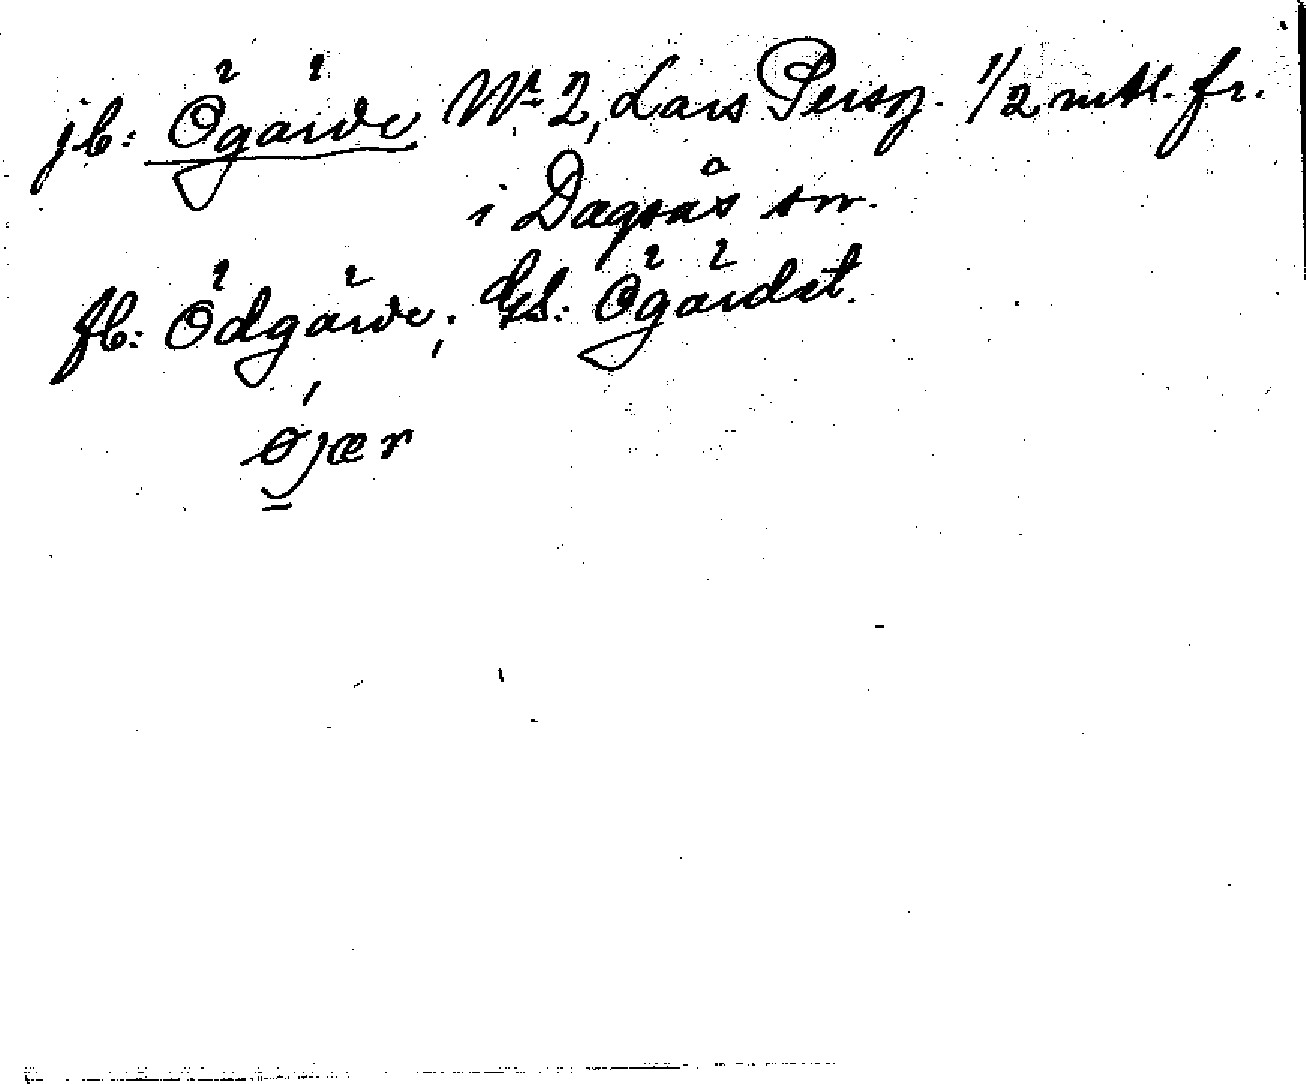 jb: Ögärde Nr 2, Lars Persg. 1/2 mtl. fr.
i Dagsås sn.
fb: Ödgärde; Gs: Ögärdet.
öjær